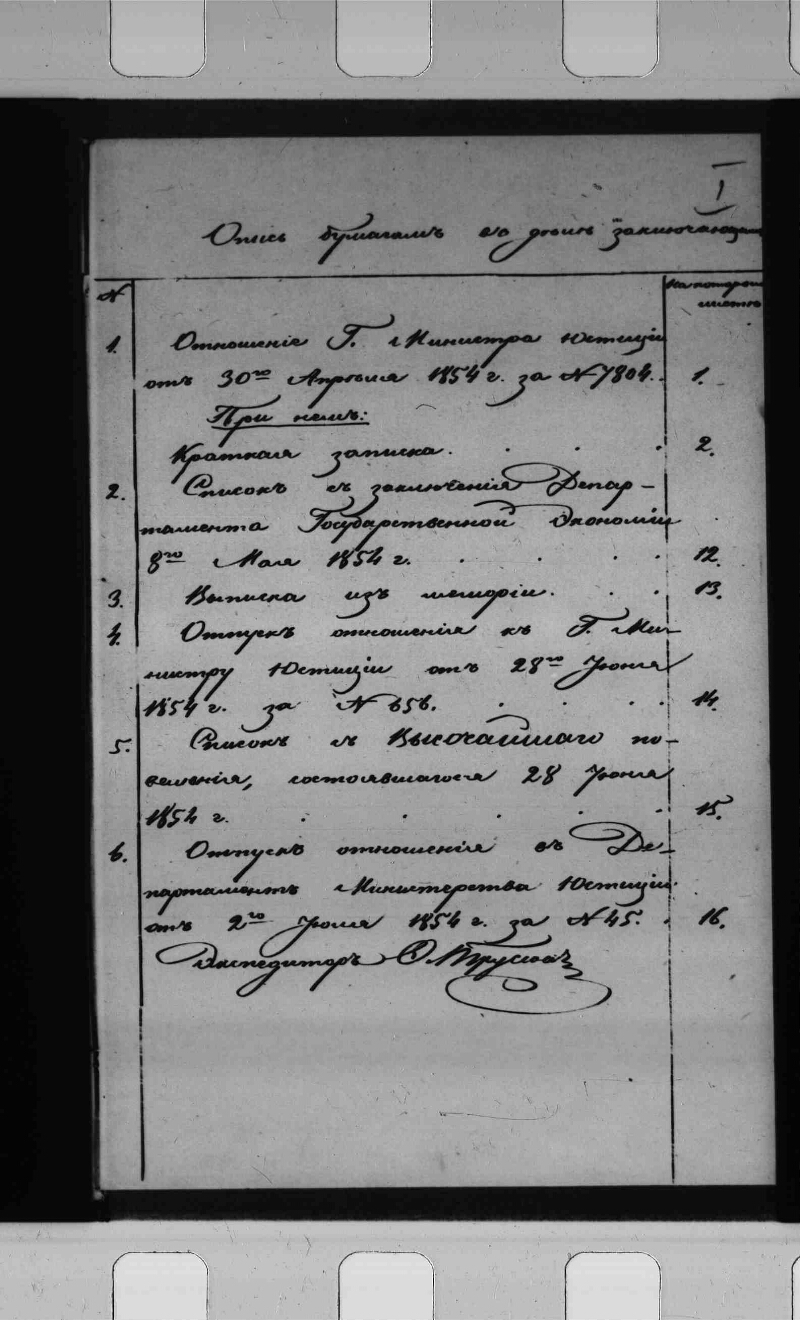 I
Опись бумагамъ въ деле заключающимся
N На которомъ
листе
1. Отношеніе Г. Министра Юстиціи
отъ 30го Апреля 1854 г. за N 7804. 1.
При немъ:
Краткая записка. . . . 2.
2. Списокъ съ заключенія Депар-
тамента Государственной Экономіи
8го Мая 1854 г. . . . 12.
3. Выписка изъ меморіи. . . 13.
4. Отпускъ отношенія къ Г. Ми-
нистру Юстиціи отъ 28го Іюня
1854 г. за N 656. . . . . 14.
5. Списокъ съ Высочайшаго по-
веленія, состоявшагося 28 Іюня
1854 г. . . . . . 15.
6. Отпускъ отношенія въ Де-
партаментъ Министерства Юстиціи
отъ 2го Іюля 1854 г. за N 45. . 16.
Экспедиторъ